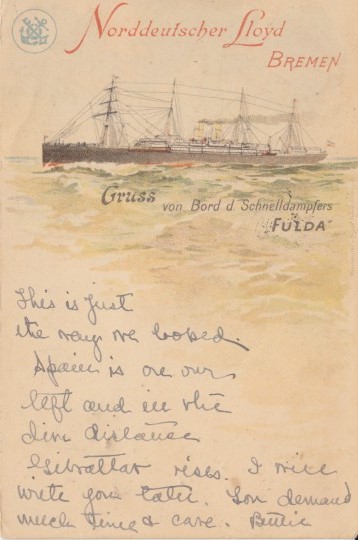 Norddeutscher Lloyd
BREMEN
Gruss
von Bord d. Schnelldampfers
"FULDA"
This is just
the way we looked.
Spain is on our
left and in the
dim distance
Gibraltar rises. I will
write you later. Son demand
much time & care. Bettie